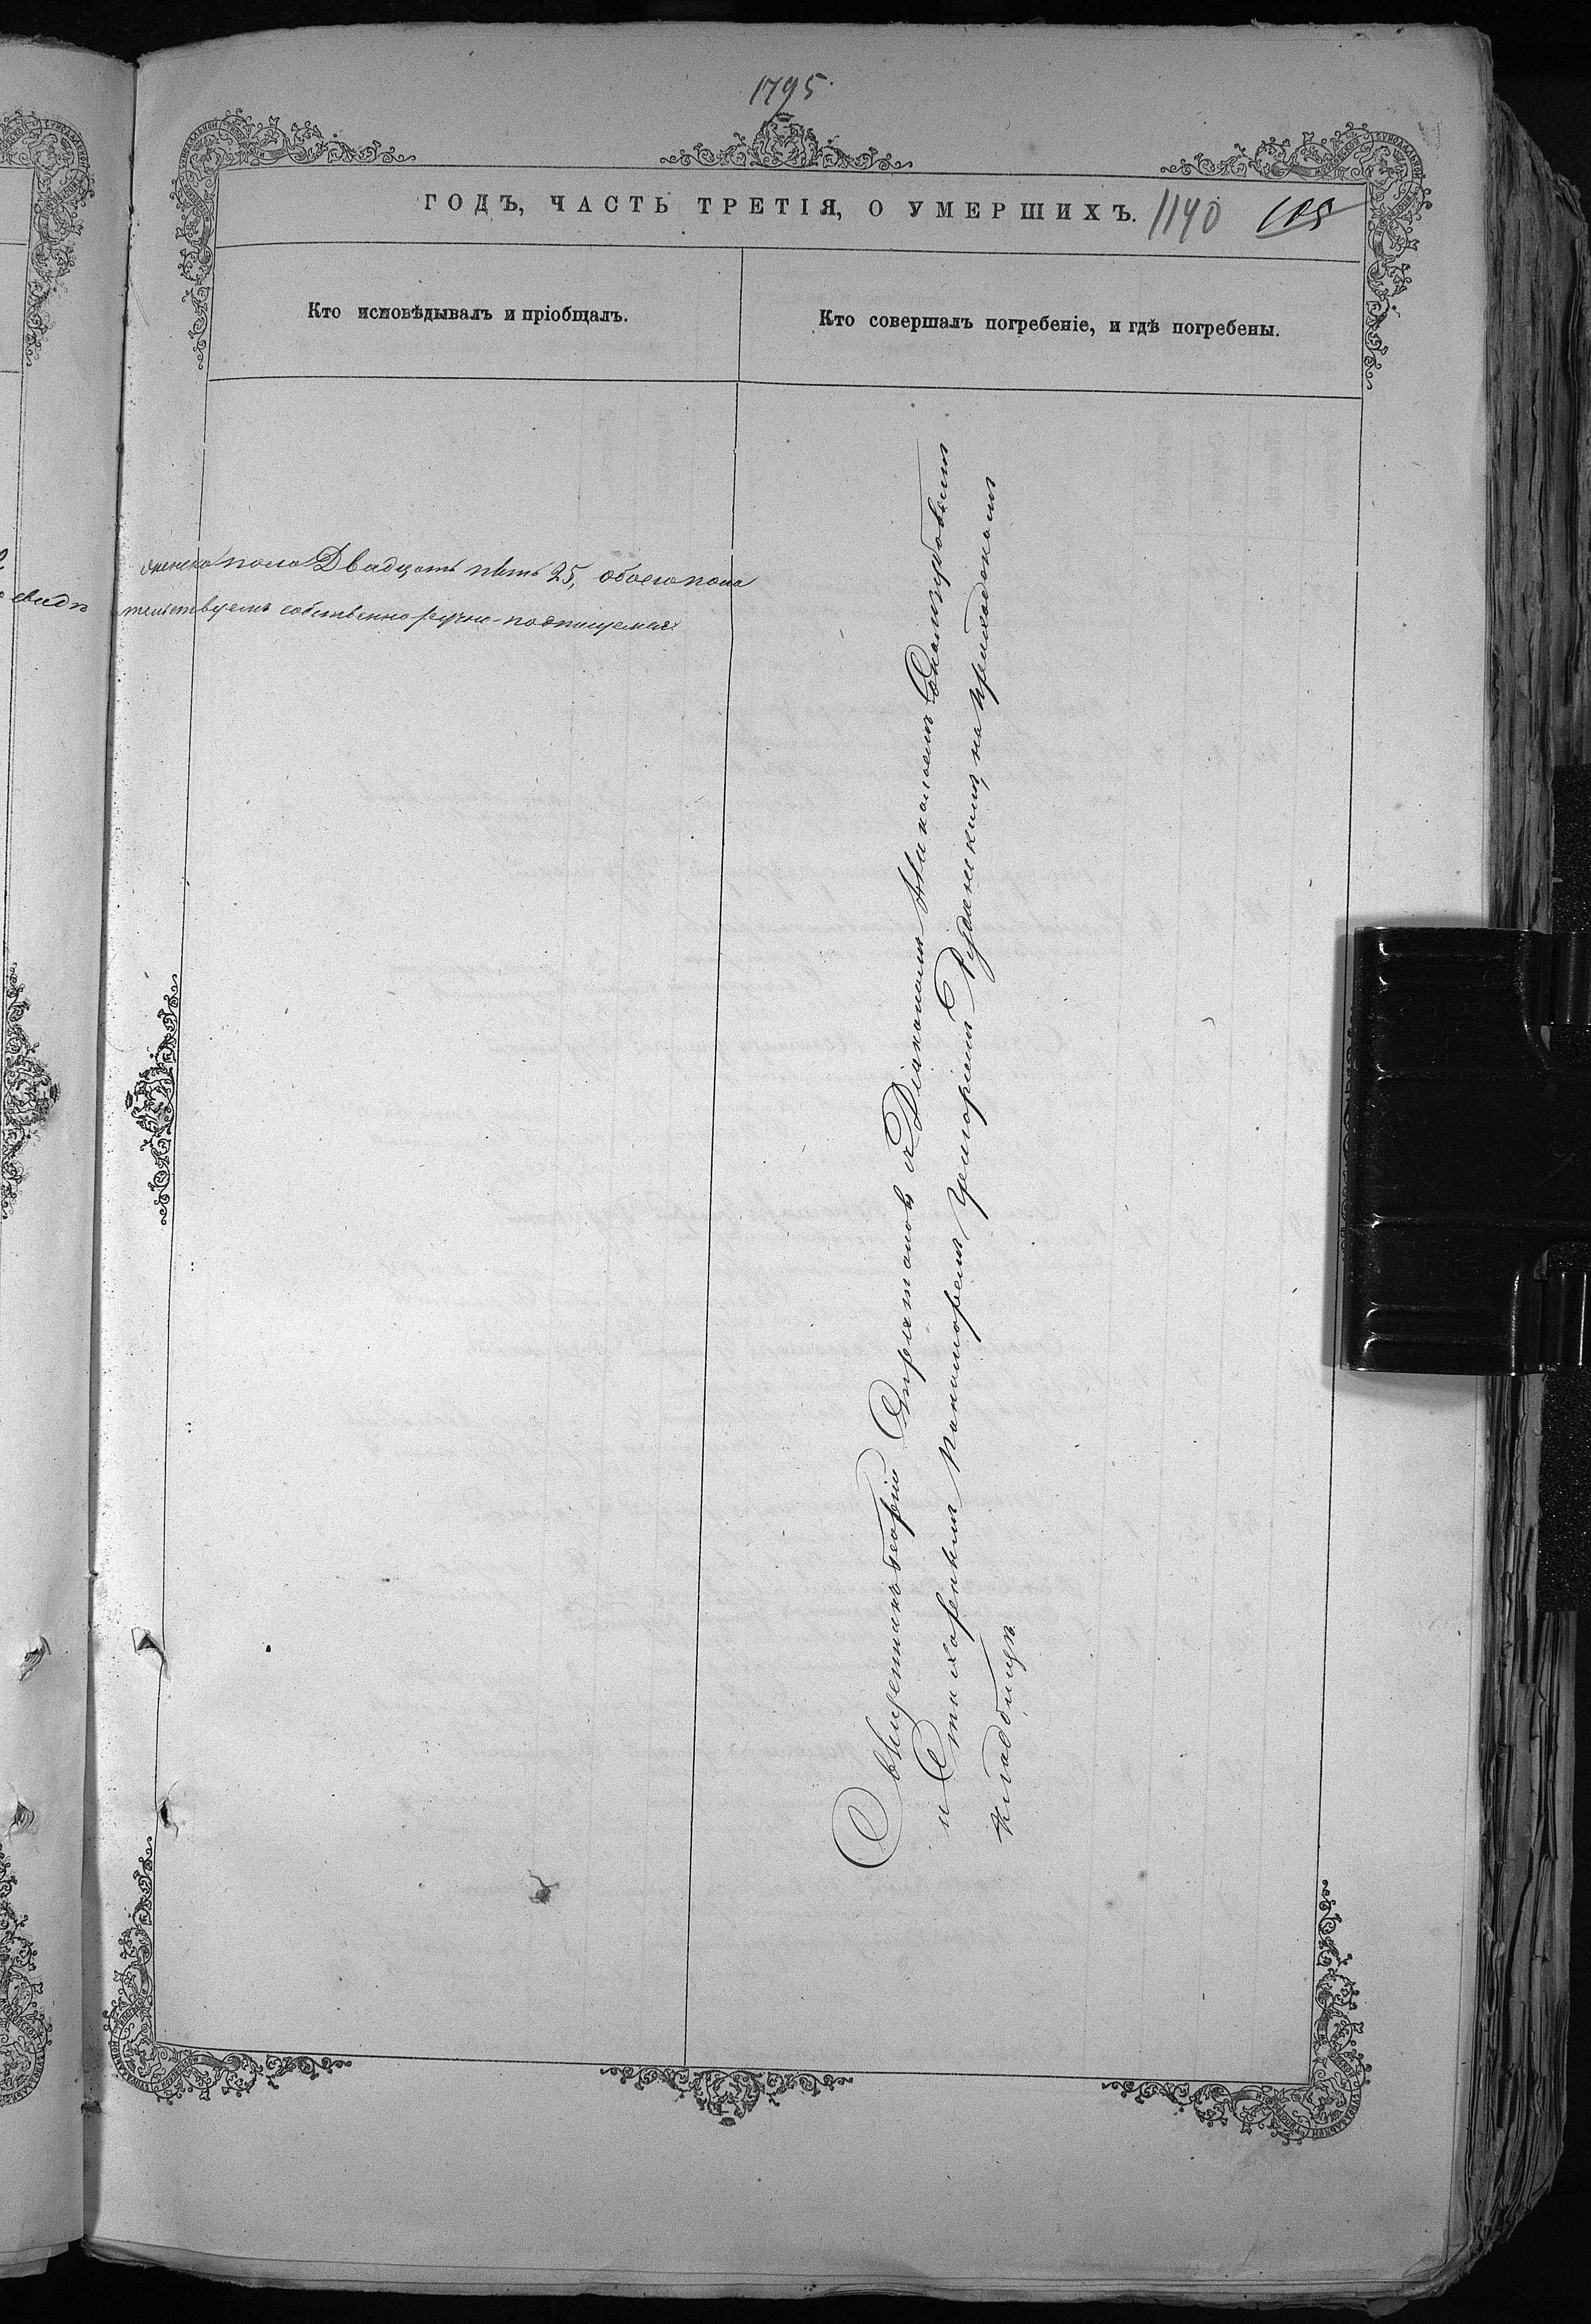 1795.
ГОДЪ, ЧАСТЬ ТРЕТІЯ, О УМЕРШИХЪ. 1140 105
Кто исповѣдывалъ и пріобщалъ.
Кто совершалъ погребеніе, и гдѣ погребены.
женска пола Двадцать пять 25, обоего пола
свидѣ
тельствуемъ собственноручно подписуемся:
Священникъ Георгій съ Діакономъ Николаемъ
и пономоремъ Григоріемъ на приходскомъ
кладбищѣ